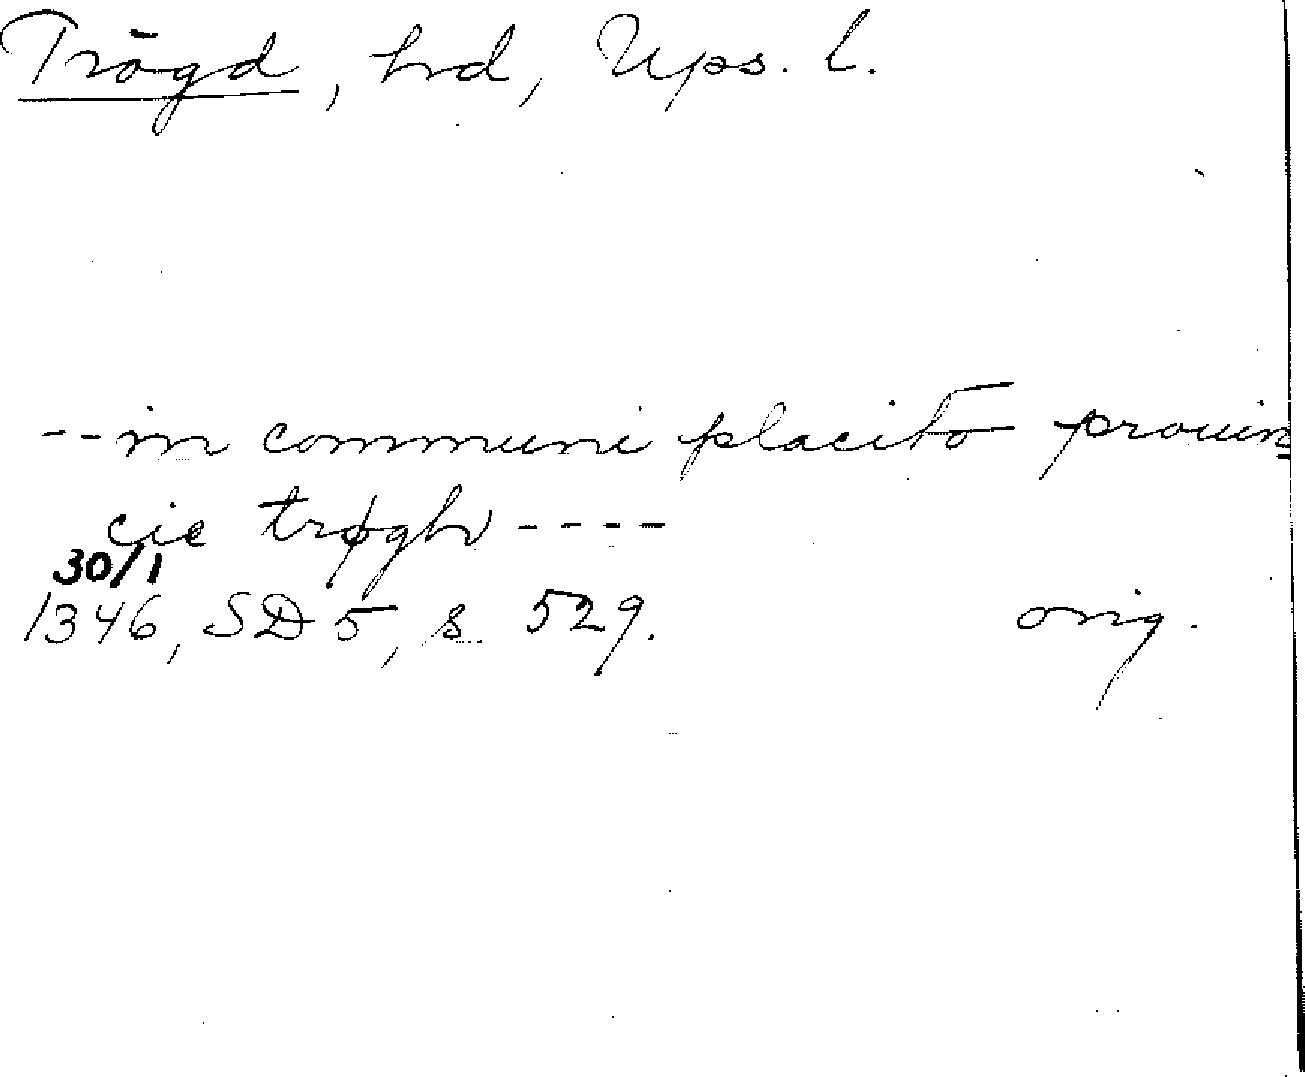 Trögd, hd, Ups. l.
-- in communi placito prouin
cie trøgh ----
30/1
1346, SD 5, s. 529. orig.